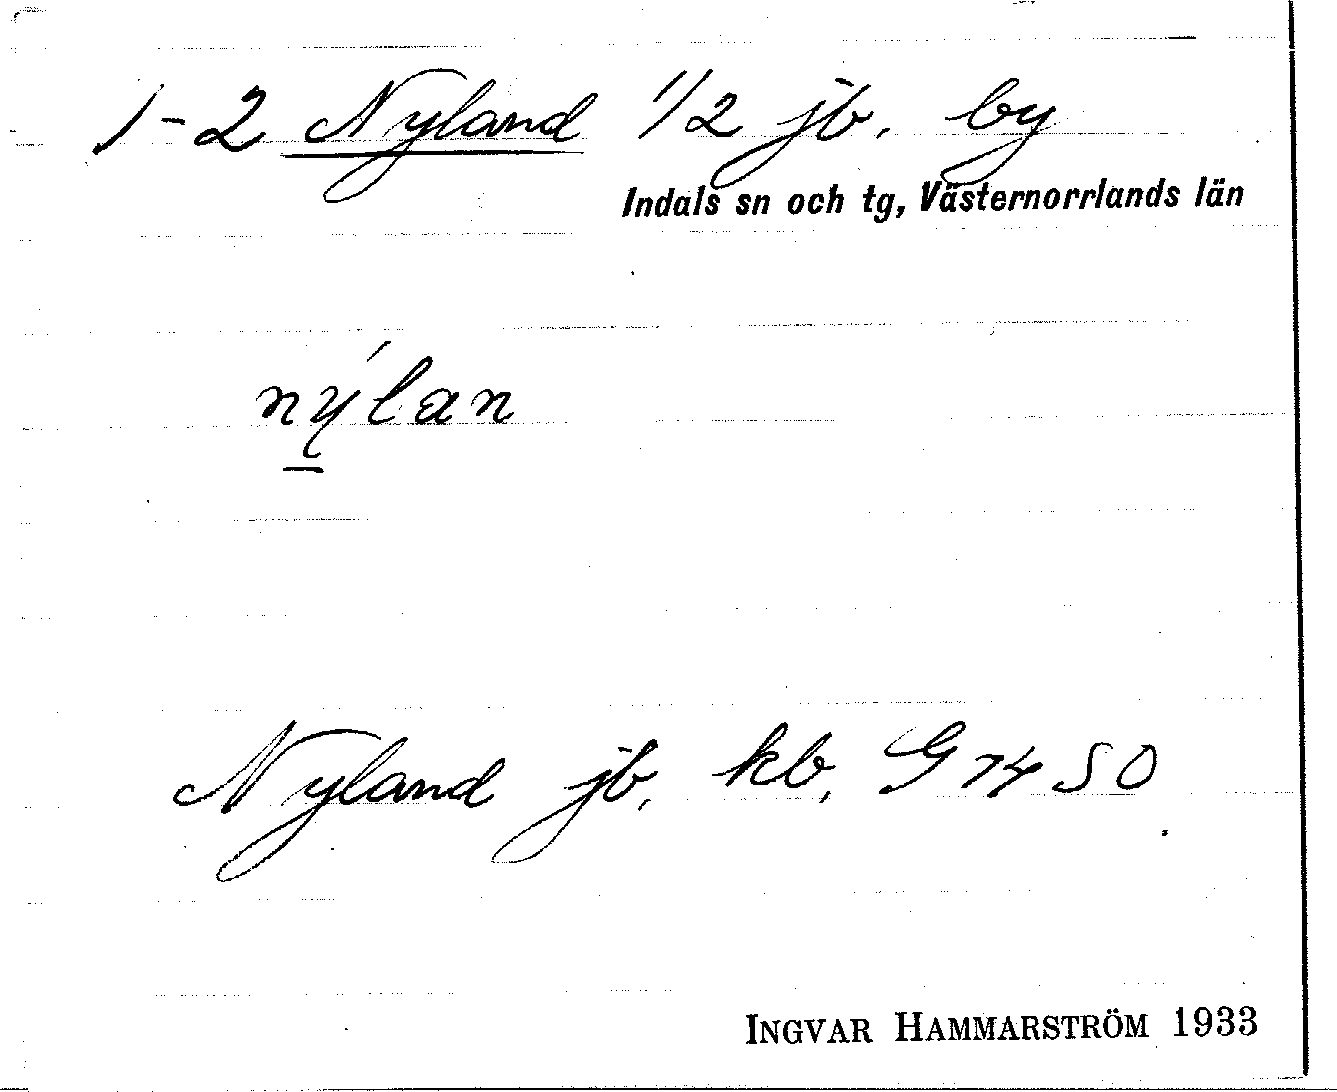 1-2 Nyland 1/2 jb. by
Indals sn och tg, Västernorrlands län
nýlan
Nyland jb, kb, G 74 SO.
INGVAR HAMMARSTRÖM 1933